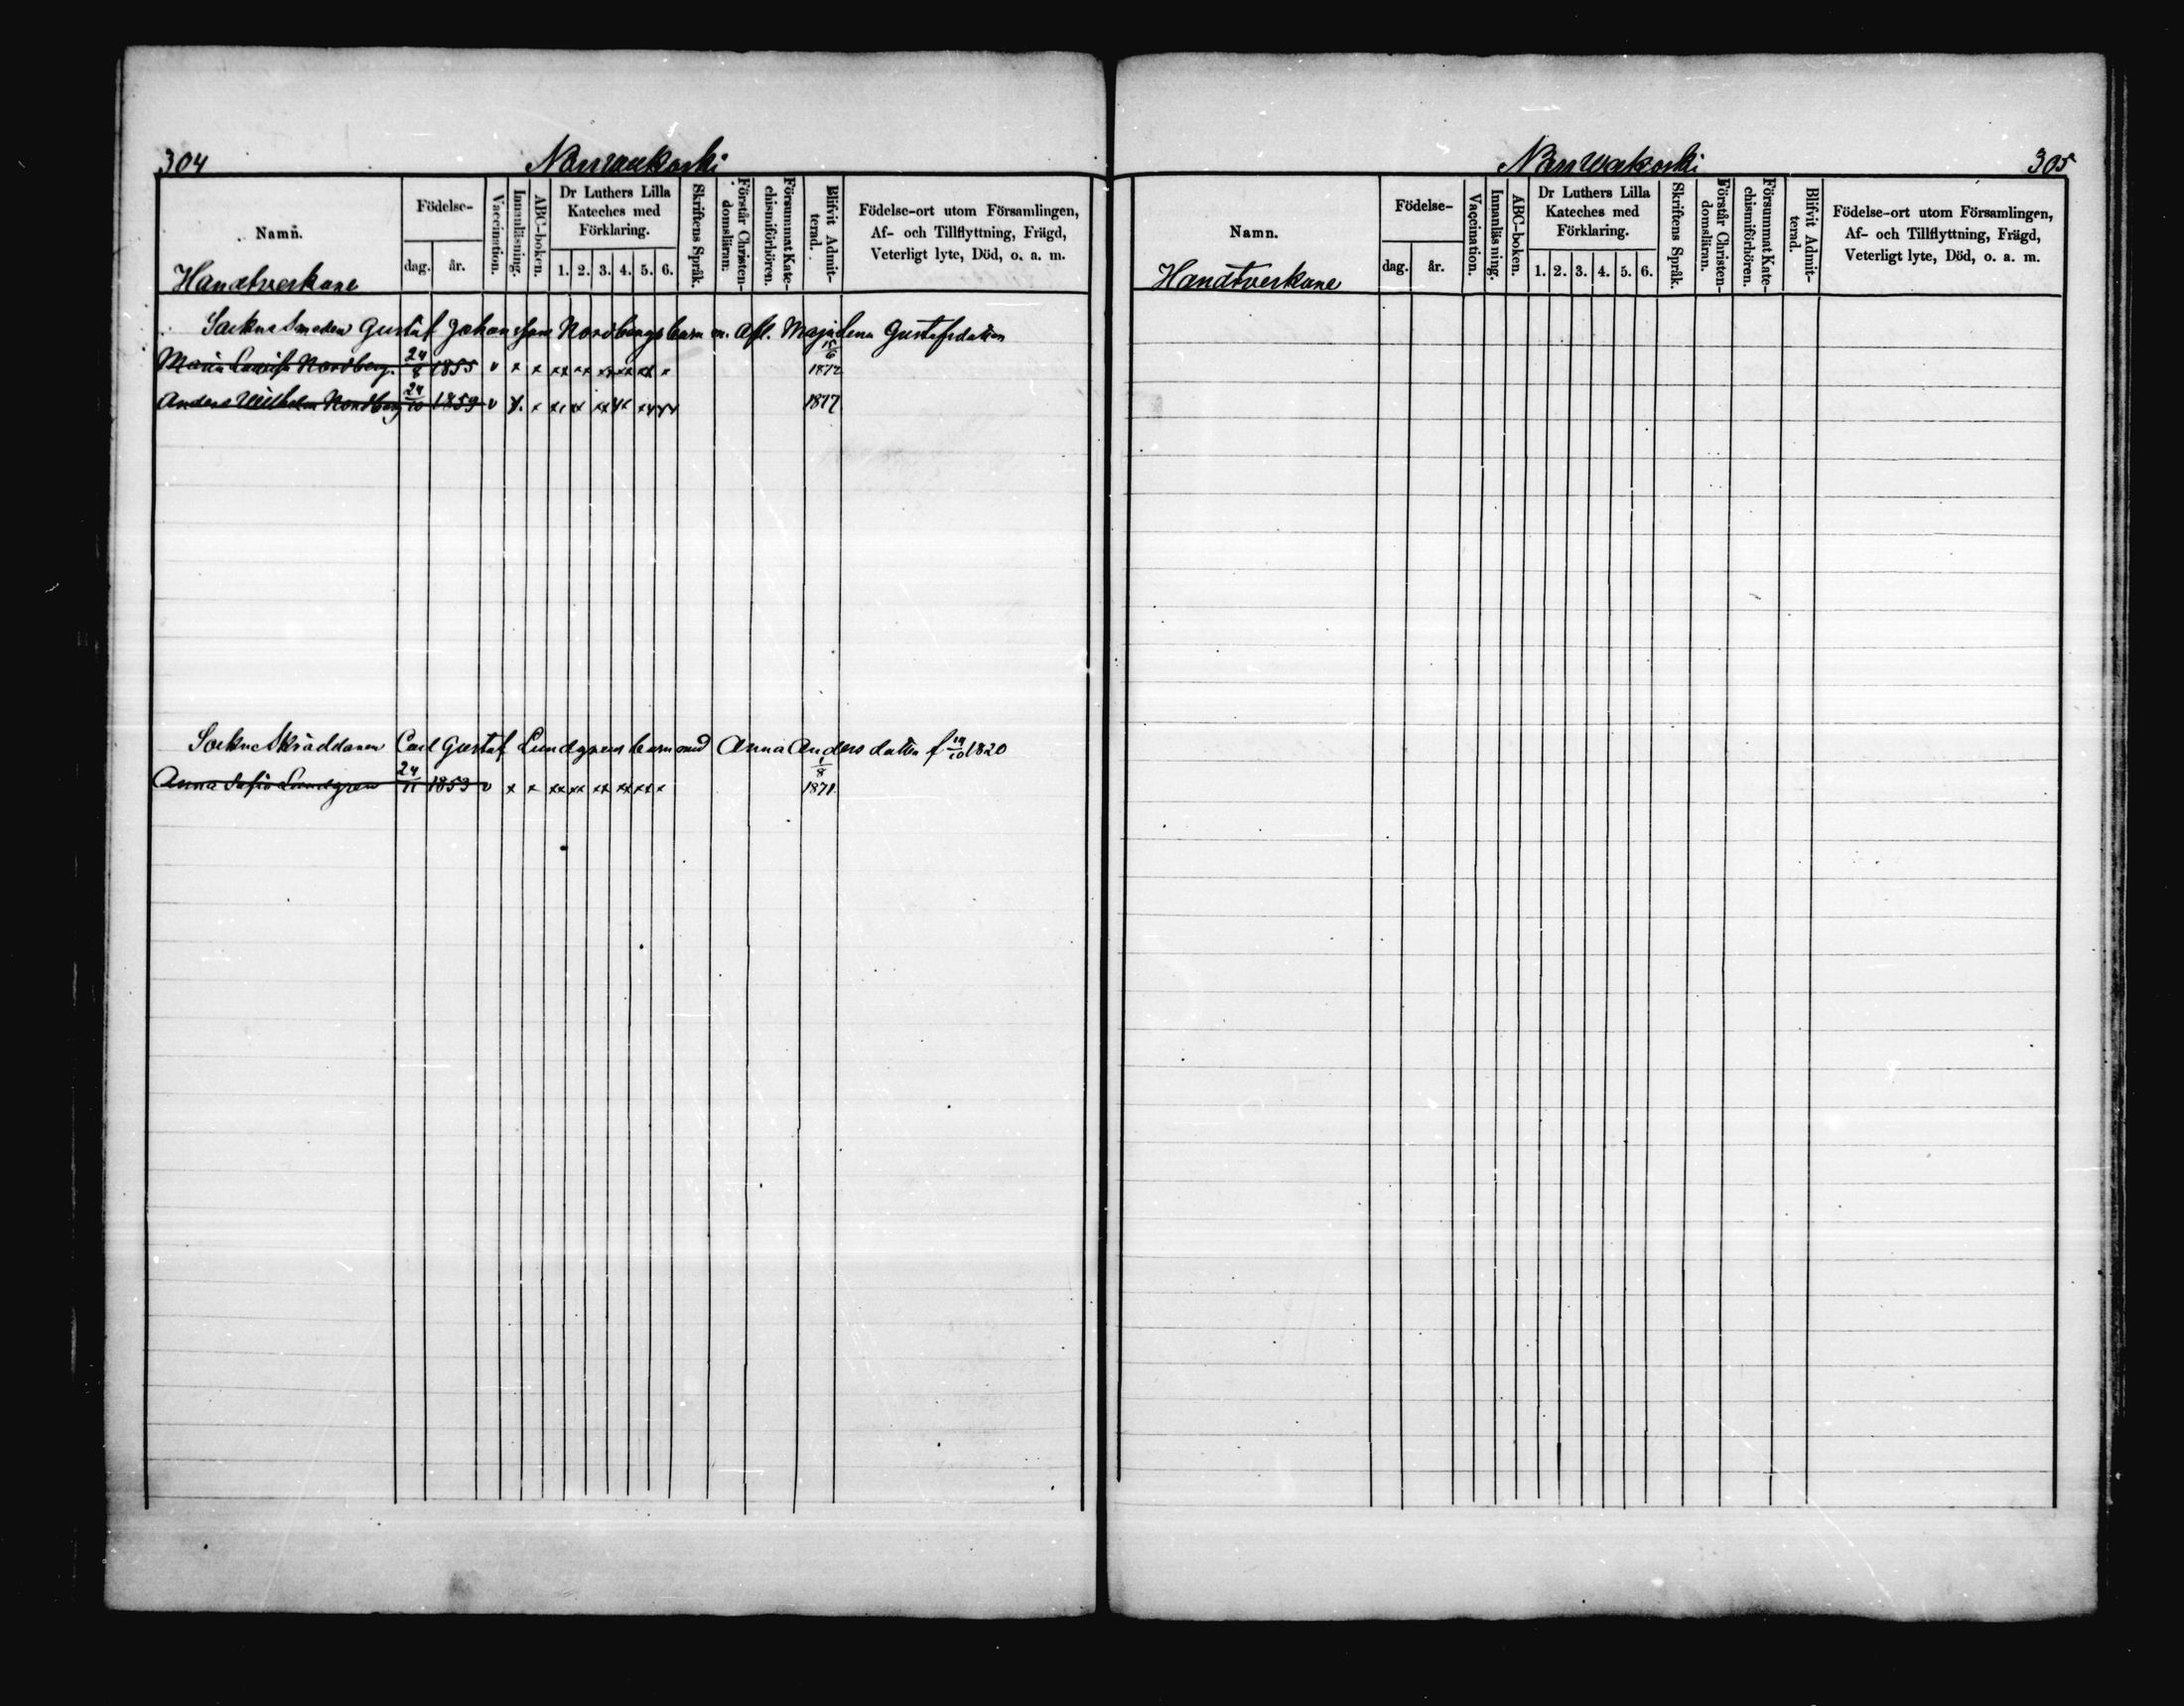 304
Födelse-
Namn.
dag. år.
Vaccination.
Innanläsning.
ABC-boken.
Dr Luthers Lilla
Kateches med
Förklaring.
1. 2. 3. 4. 5. 6.
Skriftens Språk.
Förstår Christen-
domsläran.
Försummat Kate-
chismiförhören.
Blifvit Admit-
terad.
Födelse-ort utom Församlingen,
Af- och Tillflyttning, Frägd,
Veterligt lyte, Död, o. a. m.
Handtverkare
Sockne Smeden Gustaf Johansson Nordbergs barn m. Afl. Maja Lena Gustafsdotter
15/6
Maria Lovisa Nordberg 24/8 1855 v x x xx xx xx xx xx x 1872
Anders Wilhelm Nordberg 24/10 1859 v x x xx xx xx xx xx xx 1877
Sockne Skräddaren Carl Gustaf Lundgrens barn med Anna Anders dotter f 14/10 1820
1/8
Anna Sofia Lundgren 24/11 1853 v x x xx xx xx xx xx x 1871
305
Namn.
Födelse-
dag. år.
Vaccination.
Innanläsning.
ABC-boken.
Dr Luthers Lilla
Kateches med
Förklaring.
1. 2. 3. 4. 5. 6.
Skriftens Språk.
Förstår Christen-
domsläran.
Försummat Kate-
chismiförhören.
Blifvit Admit-
terad.
Födelse-ort utom Församlingen,
Af- och Tillflyttning, Frägd,
Veterligt lyte, Död, o. a. m.
Handtverkare